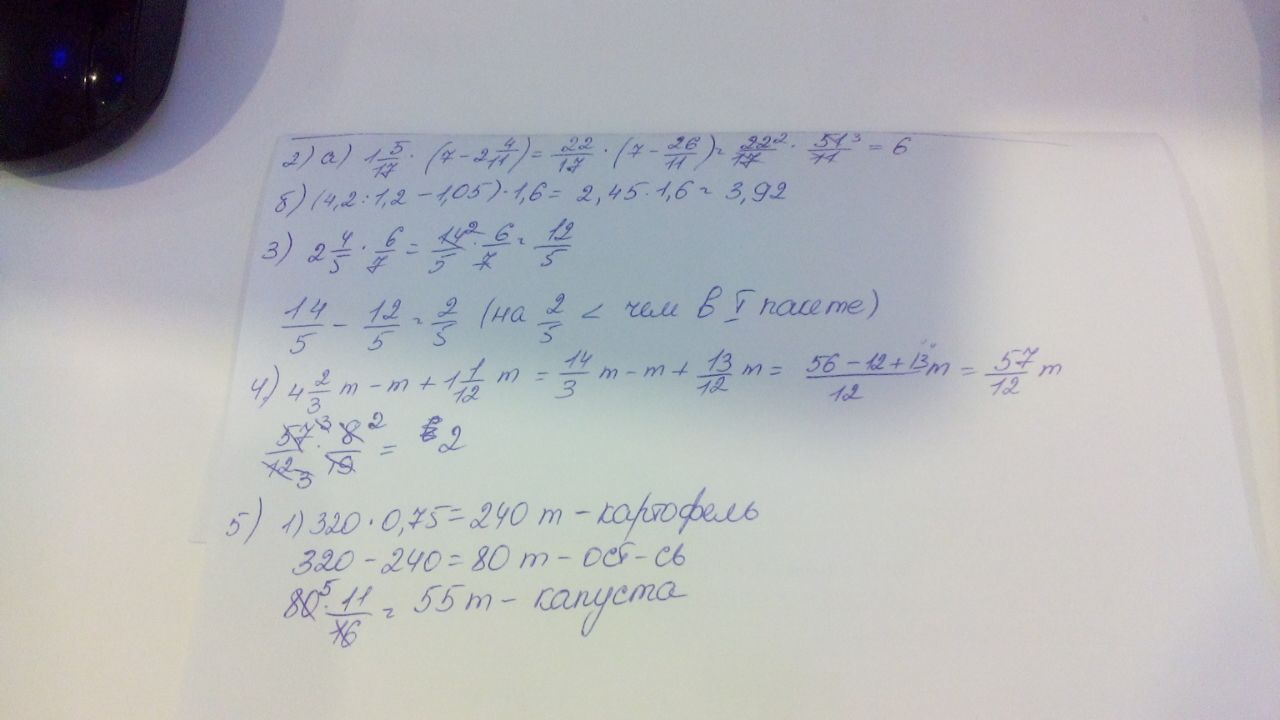 2) а) 1 5/17 · (7 - 2 4/11) = 22/17 · (7 - 26/11) = 22²/17 · 51³/11 = 6
б) (4,2 : 1,2 - 1,05) · 1,6 = 2,45 · 1,6 = 3,92
3) 2 4/5 · 6/7 = 14²/5 · 6/7 = 12/5
14/5 - 12/5 = 2/5 (на 2/5 < чем в I пакете)
4) 4 2/3 m - m + 1 1/12 m = 14/3 m - m + 13/12 m = 56 - 12 + 13/12 m = 57/12 m
57³/12₃ · 8²/19 = 2
5) 1) 320 · 0,75 = 240 т - картофель
320 - 240 = 80 т - ост-сь
80⁵ · 11/16 = 55 т - капуста